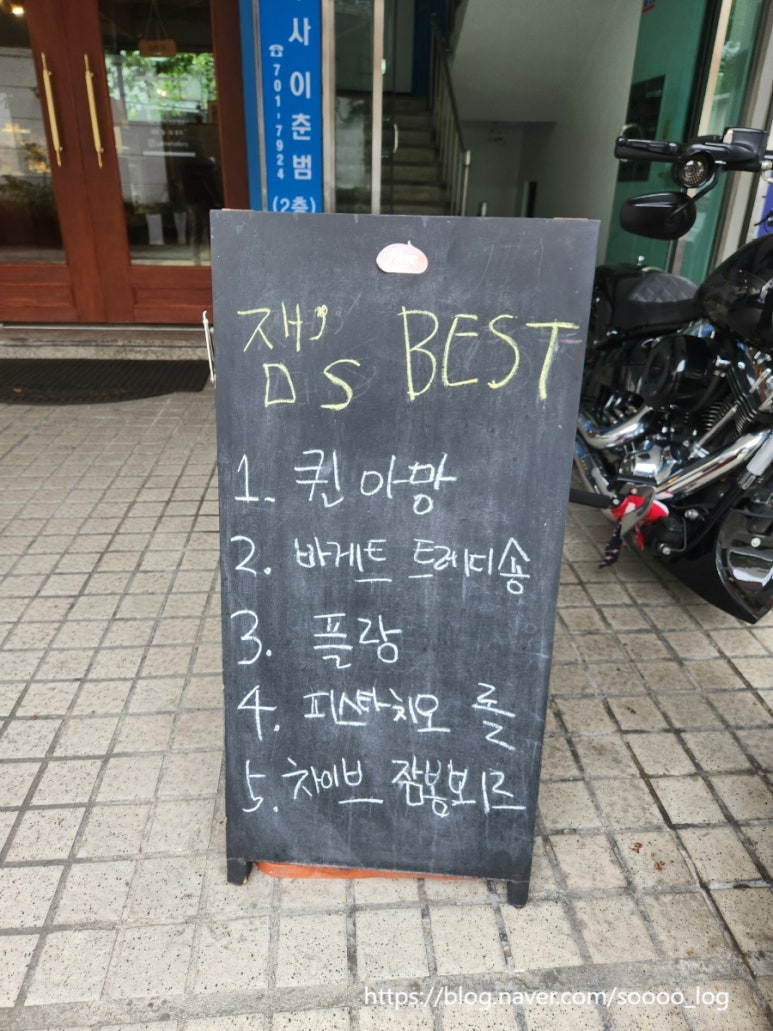 사이춘범
☎701-7924
(2층)
잼's BEST
1. 퀸아망
2. 바게트 트레디숑
3. 플랑
4. 피스타치오 롤
5. 차이브 잠봉뵈르
https://blog.naver.com/soooo_log